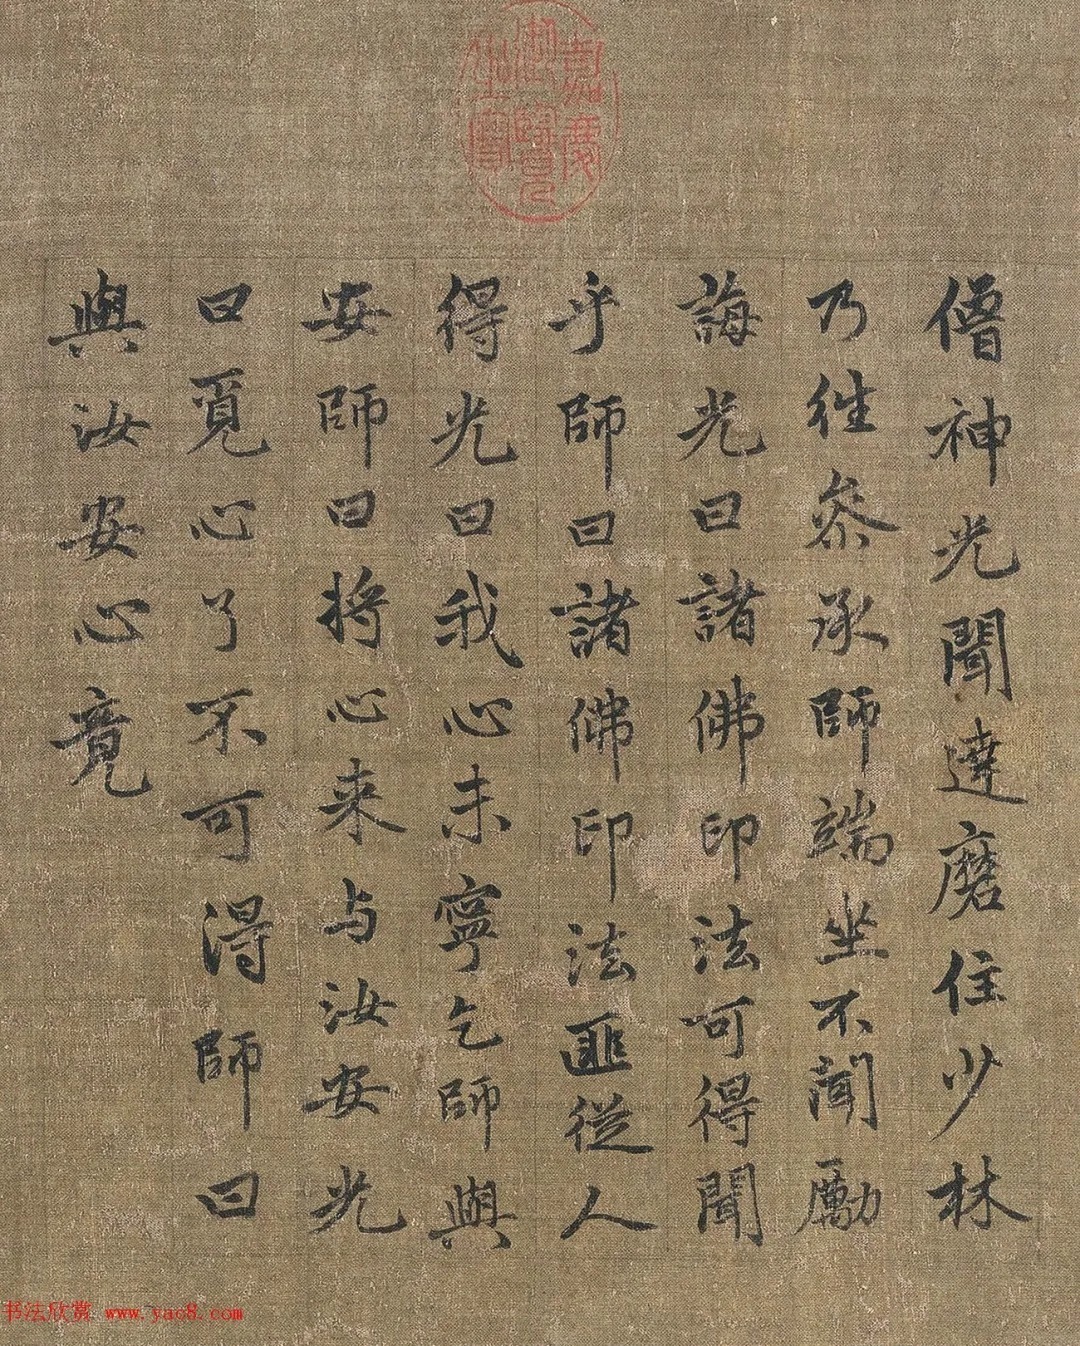 嘉慶
御覽
之寶
僧神光聞達磨住少林
乃往參承師端坐不聞勵
誨光曰諸佛印法可得聞
乎師曰諸佛印法匪從人
得光曰我心未寧乞師與
安師曰將心来与汝安光
曰覓心了不可得師曰
與汝安心竟
书法欣赏 www.yac8.com